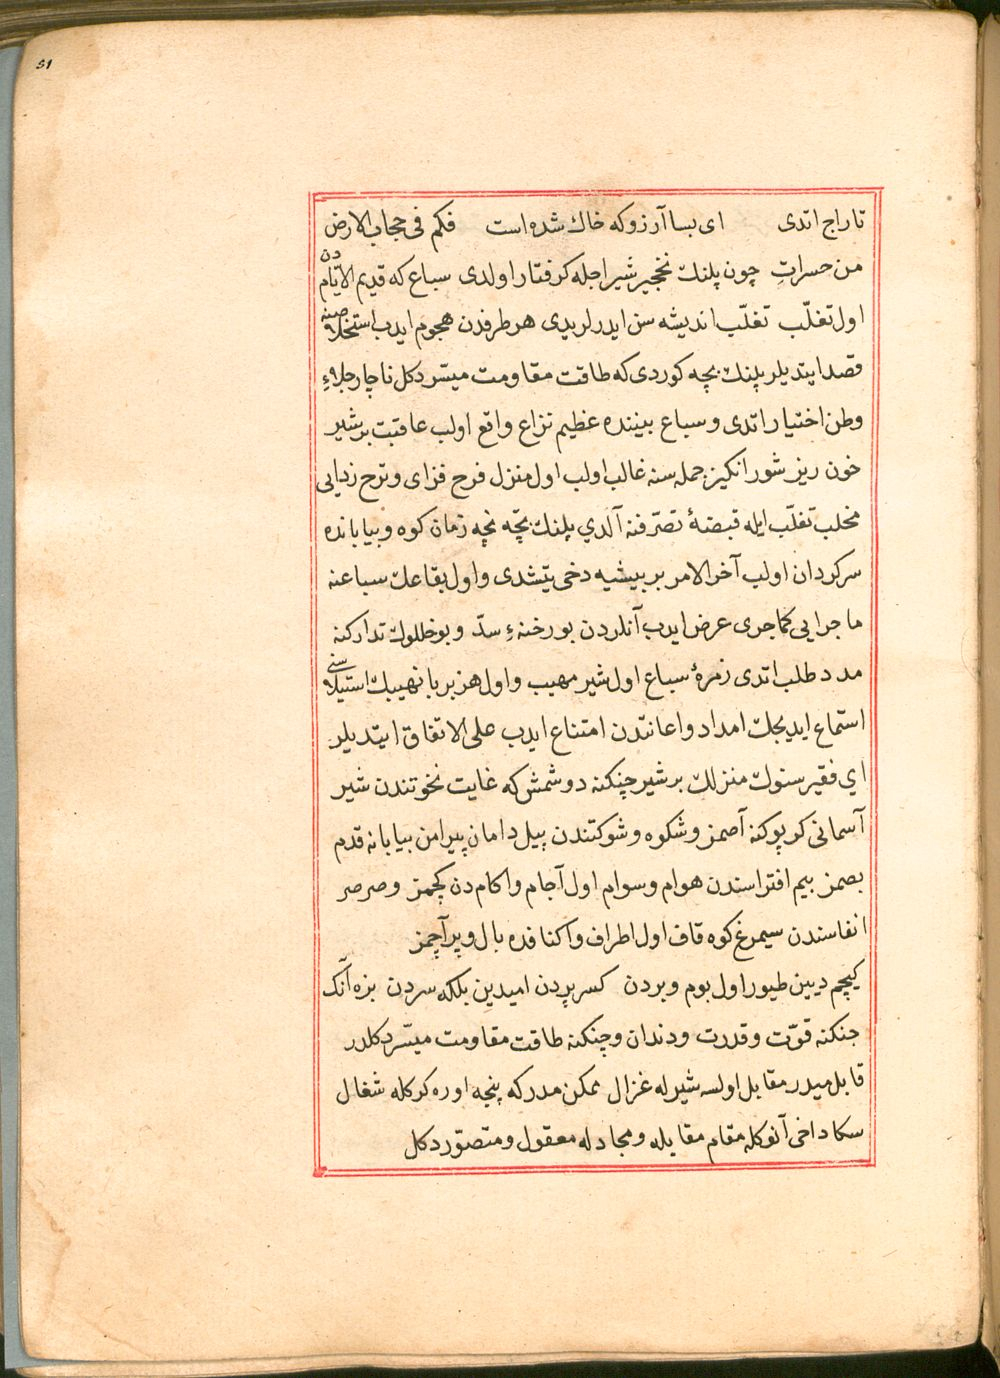 51
تاراج اتدی ای بسا آرزو که خاك شده است فکم فی حجاب الارض
من حسراتِ چون پلنك نخجیر شیر اجله کرفتار اولدی سباع که قدیم الایّام دن
اول تغلّب تغلّب اندیشه سن ایدرلریدی هر طرفدن هجوم ایدب استخلاصنه
قصد ایتدیلر پلنك بچه کوردی که طاقت مقاومت میسّر دکل ناچار جلاءِ
وطن اختیار اتدی و سباع بیننده عظیم نزاع واقع اولب عاقبت بر شیر
خون ریز شور انکیز جمله سنه غالب اولب اول منزل فرح فزای و ترح زدایی
مخلب تغلّب ایله قبضۀ تصرّفنه آلدي پلنك بچّه نچه زمان کوه و بیابانده
سرکردان اولب آخر الامر بر بیشیه دخی یتشدی و اول بقاعك سباعنه
ماجرایی کماجری عرض ایدب آنلردن بو رخنهءِ سدّ و بو خللوك تدارکنه
مدد طلب اتدی زمرۀ سباع اول شیر مهیب و اول هزبر با نهیبك استیلاسنی
استماع ایدیجك امداد و اعانتدن امتناع ایدب علی الاتفاق ایتدیلر
ای فقیر سنوك منزلك بر شیر چنکنه دوشمش که غایت نخوتندن شیر
آسمانی کر پوکنه آصمز و شکوه و شوکتندن پیل دمان پیرامن بیابانه قدم
بصمز بیم افتراسندن هوام و سوام اول آجام و اکام دن کچمز و صرصر
انفاسندن سیمرغ کوه قاف اول اطراف و اکنافده بال و پر آچمز
کیچم دیین طیور اول بوم و بردن کسر پردن امیدین بلکه سردن بزه آنك
جنکنه قوّت و قدرت و دندان و چنکنه طاقت مقاومت میسّر دکلدر
قابل میدر مقابل اولسه شیرله غزال ممکن مدر که پنجه اوره کرکله شغال
سکا داخی آنوکله مقام مقابله و مجادله معقول و متصوّر دکل